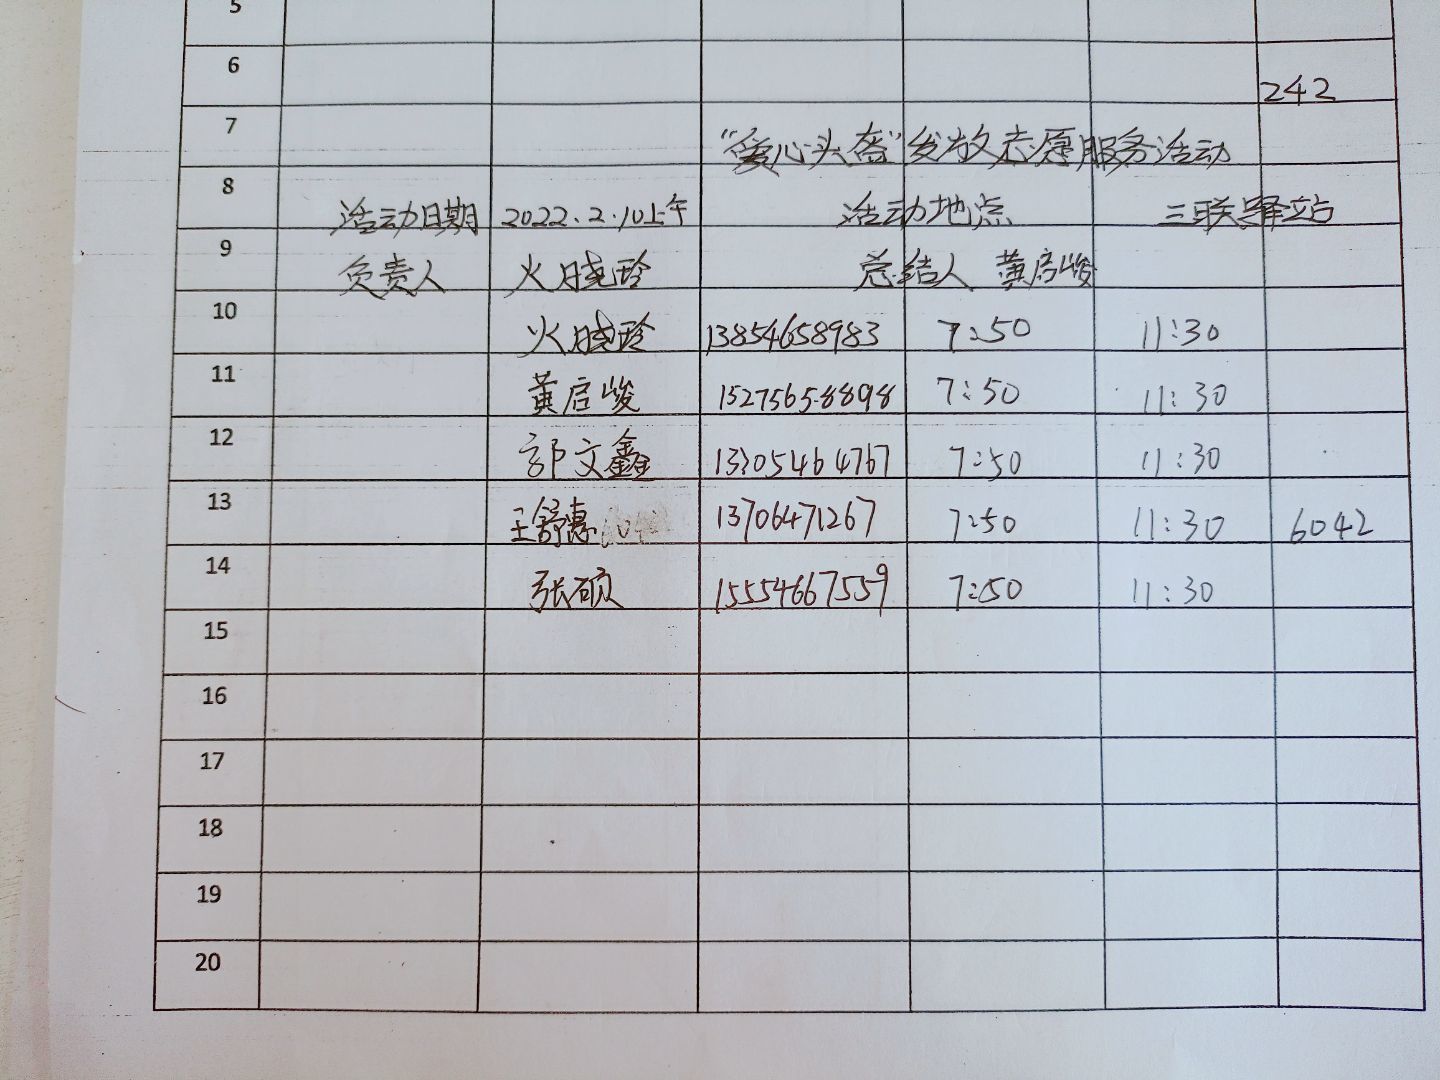 5
6
242
7 “爱心头盔”发放志愿服务活动
8 活动日期 2022.2.10上午 活动地点 三联驿站
9 负责人 火晓玲 总结人 黄启峻
10 火晓玲 13854658983 7:50 11:30
11 黄启峻 15275658898 7:50 11:30
12 郭文鑫 13305464767 7:50 11:30
13 王舒惠 13706471267 7:50 11:30 6042
14 张硕 15554667559 7:50 11:30
15
16
17
18
19
20